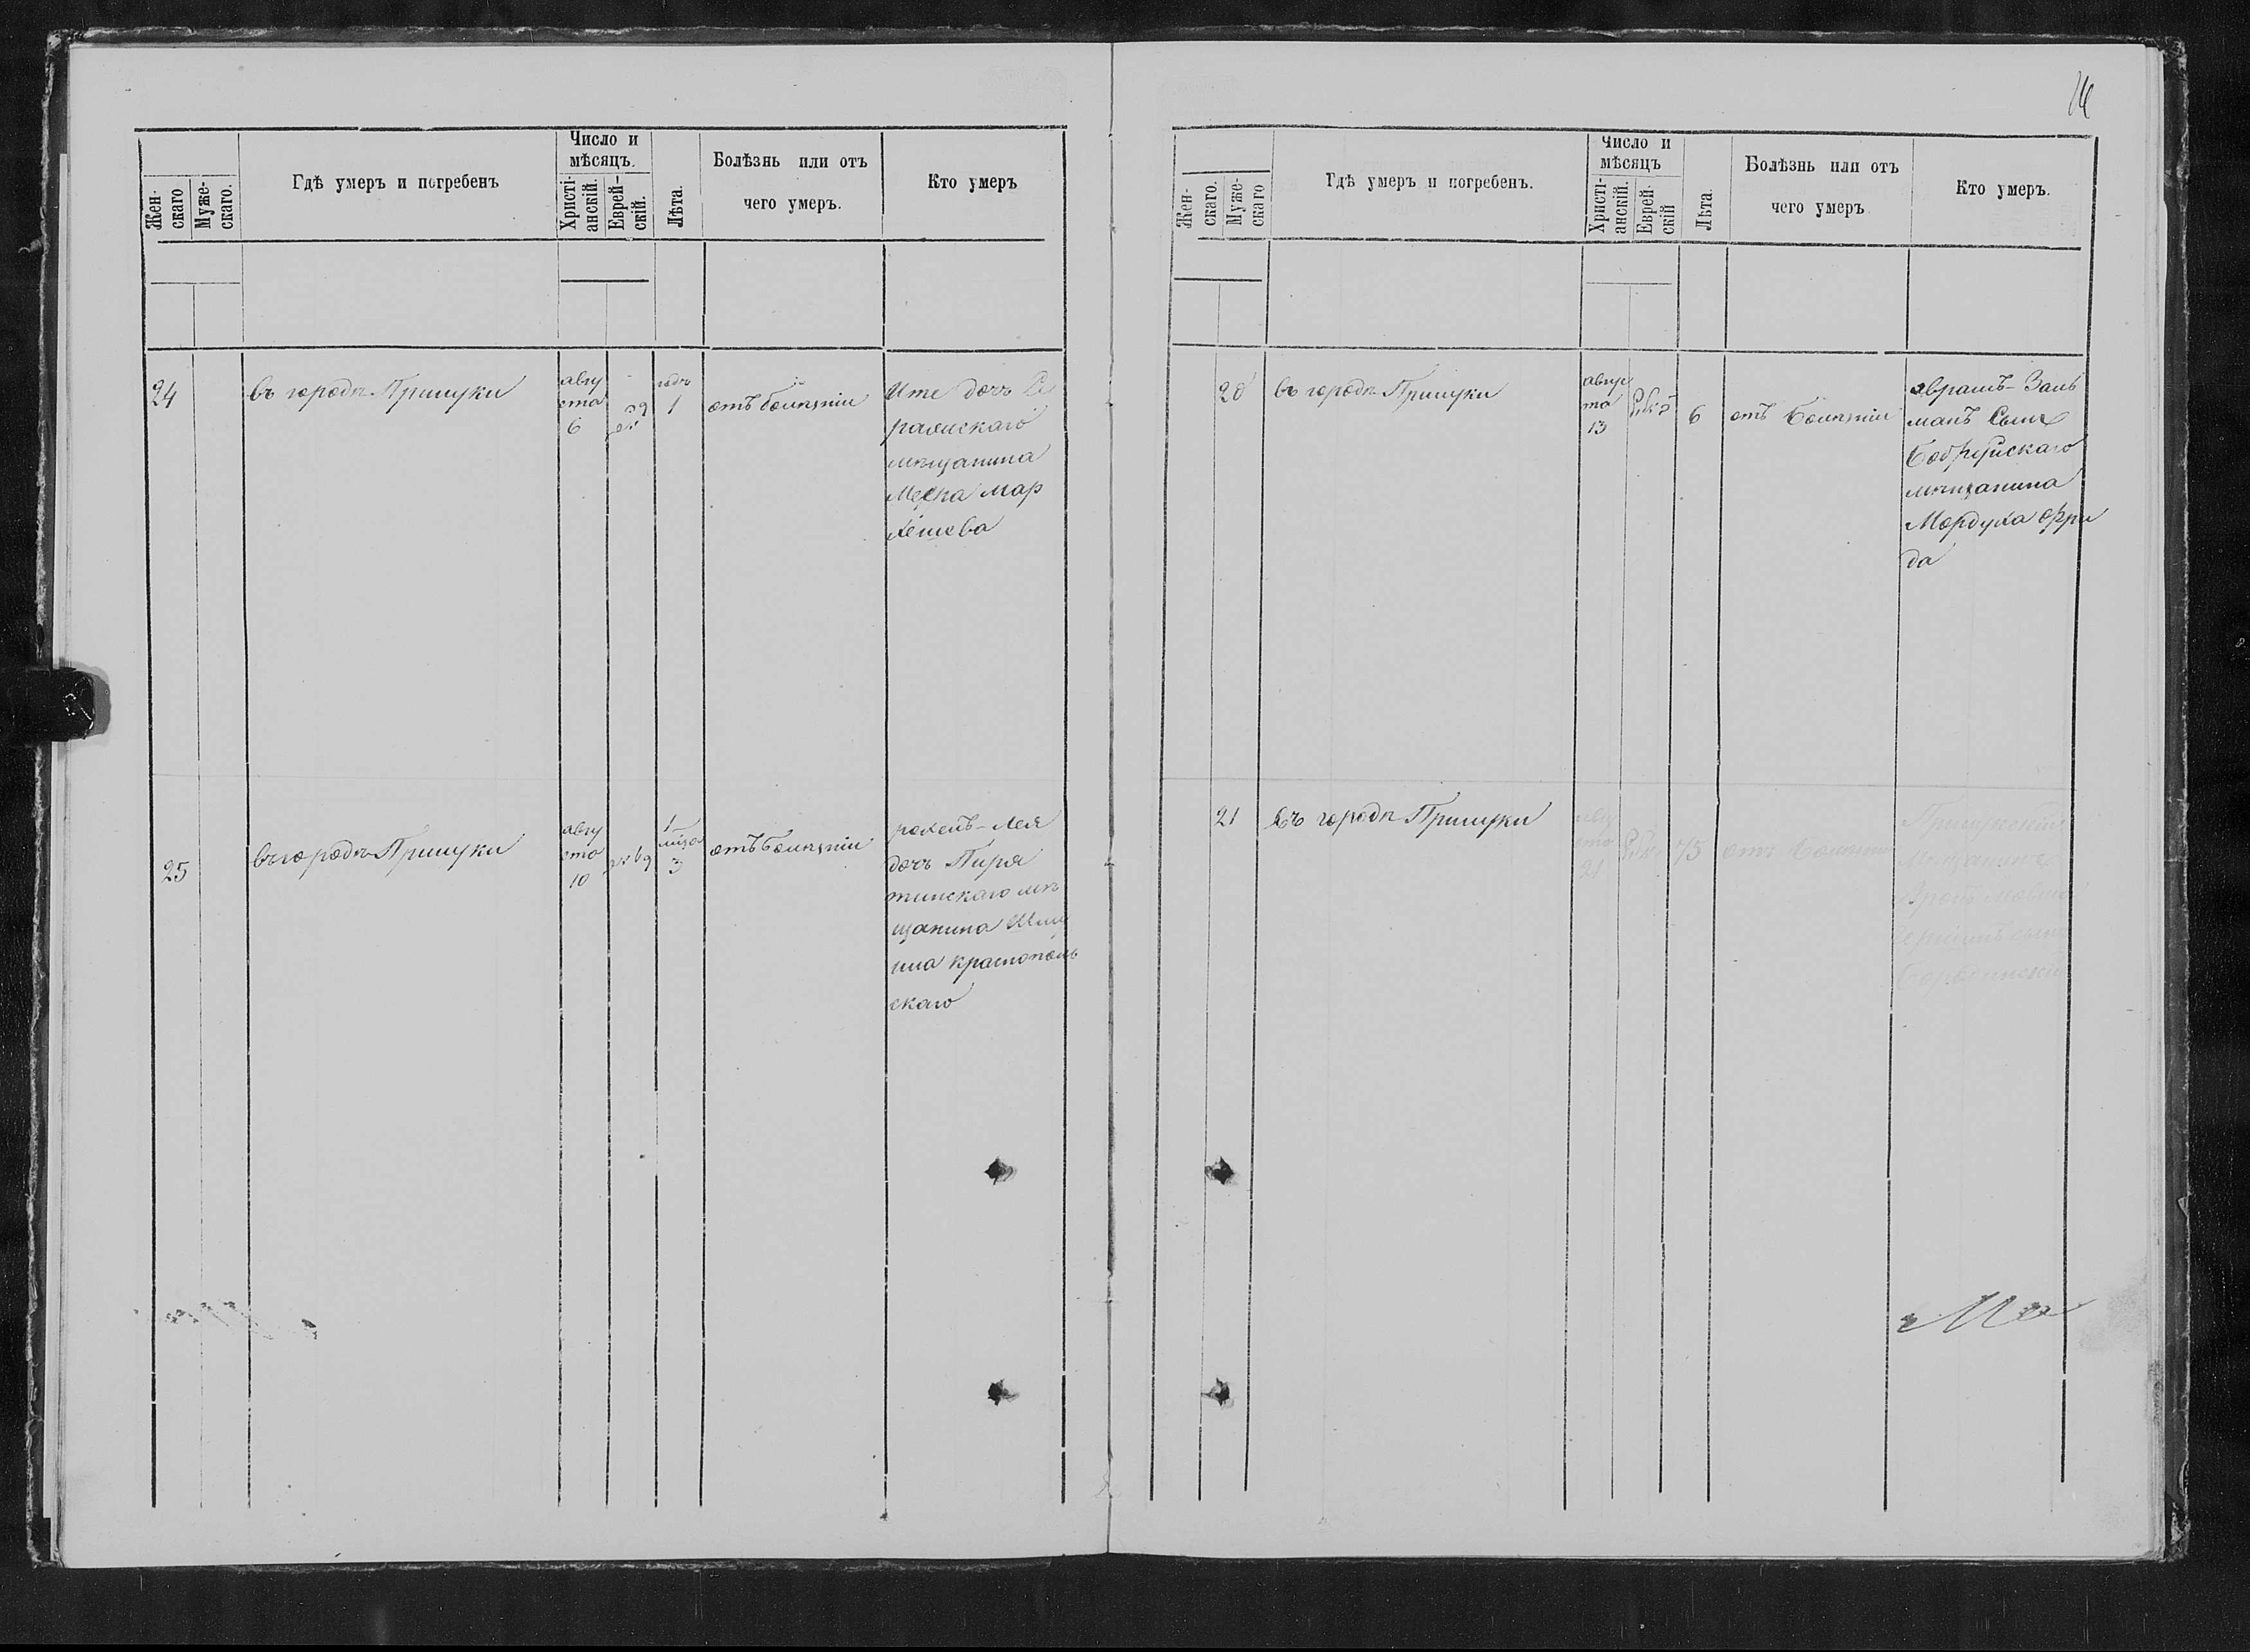 14
Жен-
скаго
Муже-
скаго.
Гдѣ умеръ и погребенъ
Число и
мѣсяцъ.
Христі-
анскій.
Еврей-
скій.
Лѣта.
Болѣзнь или отъ
чего умеръ.
Кто умеръ
24
въ городѣ Прилуки
авгу
ста
6
годъ
1
отъ болѣзни
Ите дочь
мѣщанина
25
въ городѣ Прилуки
авгу
ста
10
1
3
отъ болѣзни
рохель-Лея
дочь Пиря
тинскаго мѣ
щанина
Краснополь
скаго
Жен-
скаго.
Муже-
скаго
Гдѣ умеръ и погребенъ.
Число и
мѣсяцъ
Христі-
анскій.
Еврей-
скій
Лѣта.
Болѣзнь или отъ
чего умеръ
Кто умеръ.
20
въ городѣ Прилуки
авгус
та
13
6
отъ болѣзни
аврамъ-Заль
манъ Сынъ
Бобруйскаго
мѣщанина
Мордуха Фри
да
21
въ городѣ Прилуки
авгу
ста
21
75
отъ болѣзни
Прилукскій
Мѣщанинъ